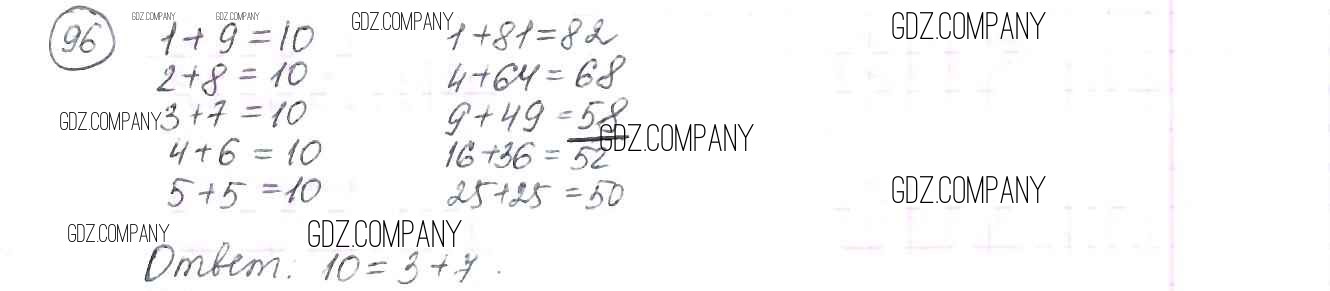 GDZ.COMPANY GDZ.COMPANY GDZ.COMPANY GDZ.COMPANY
96 1 + 9 = 10 1 + 81 = 82
2 + 8 = 10 4 + 64 = 68
GDZ.COMPANY 3 + 7 = 10 9 + 49 = 58
GDZ.COMPANY
4 + 6 = 10 16 + 36 = 52
5 + 5 = 10 25 + 25 = 50
GDZ.COMPANY
GDZ.COMPANY GDZ.COMPANY
Ответ: 10 = 3 + 7.